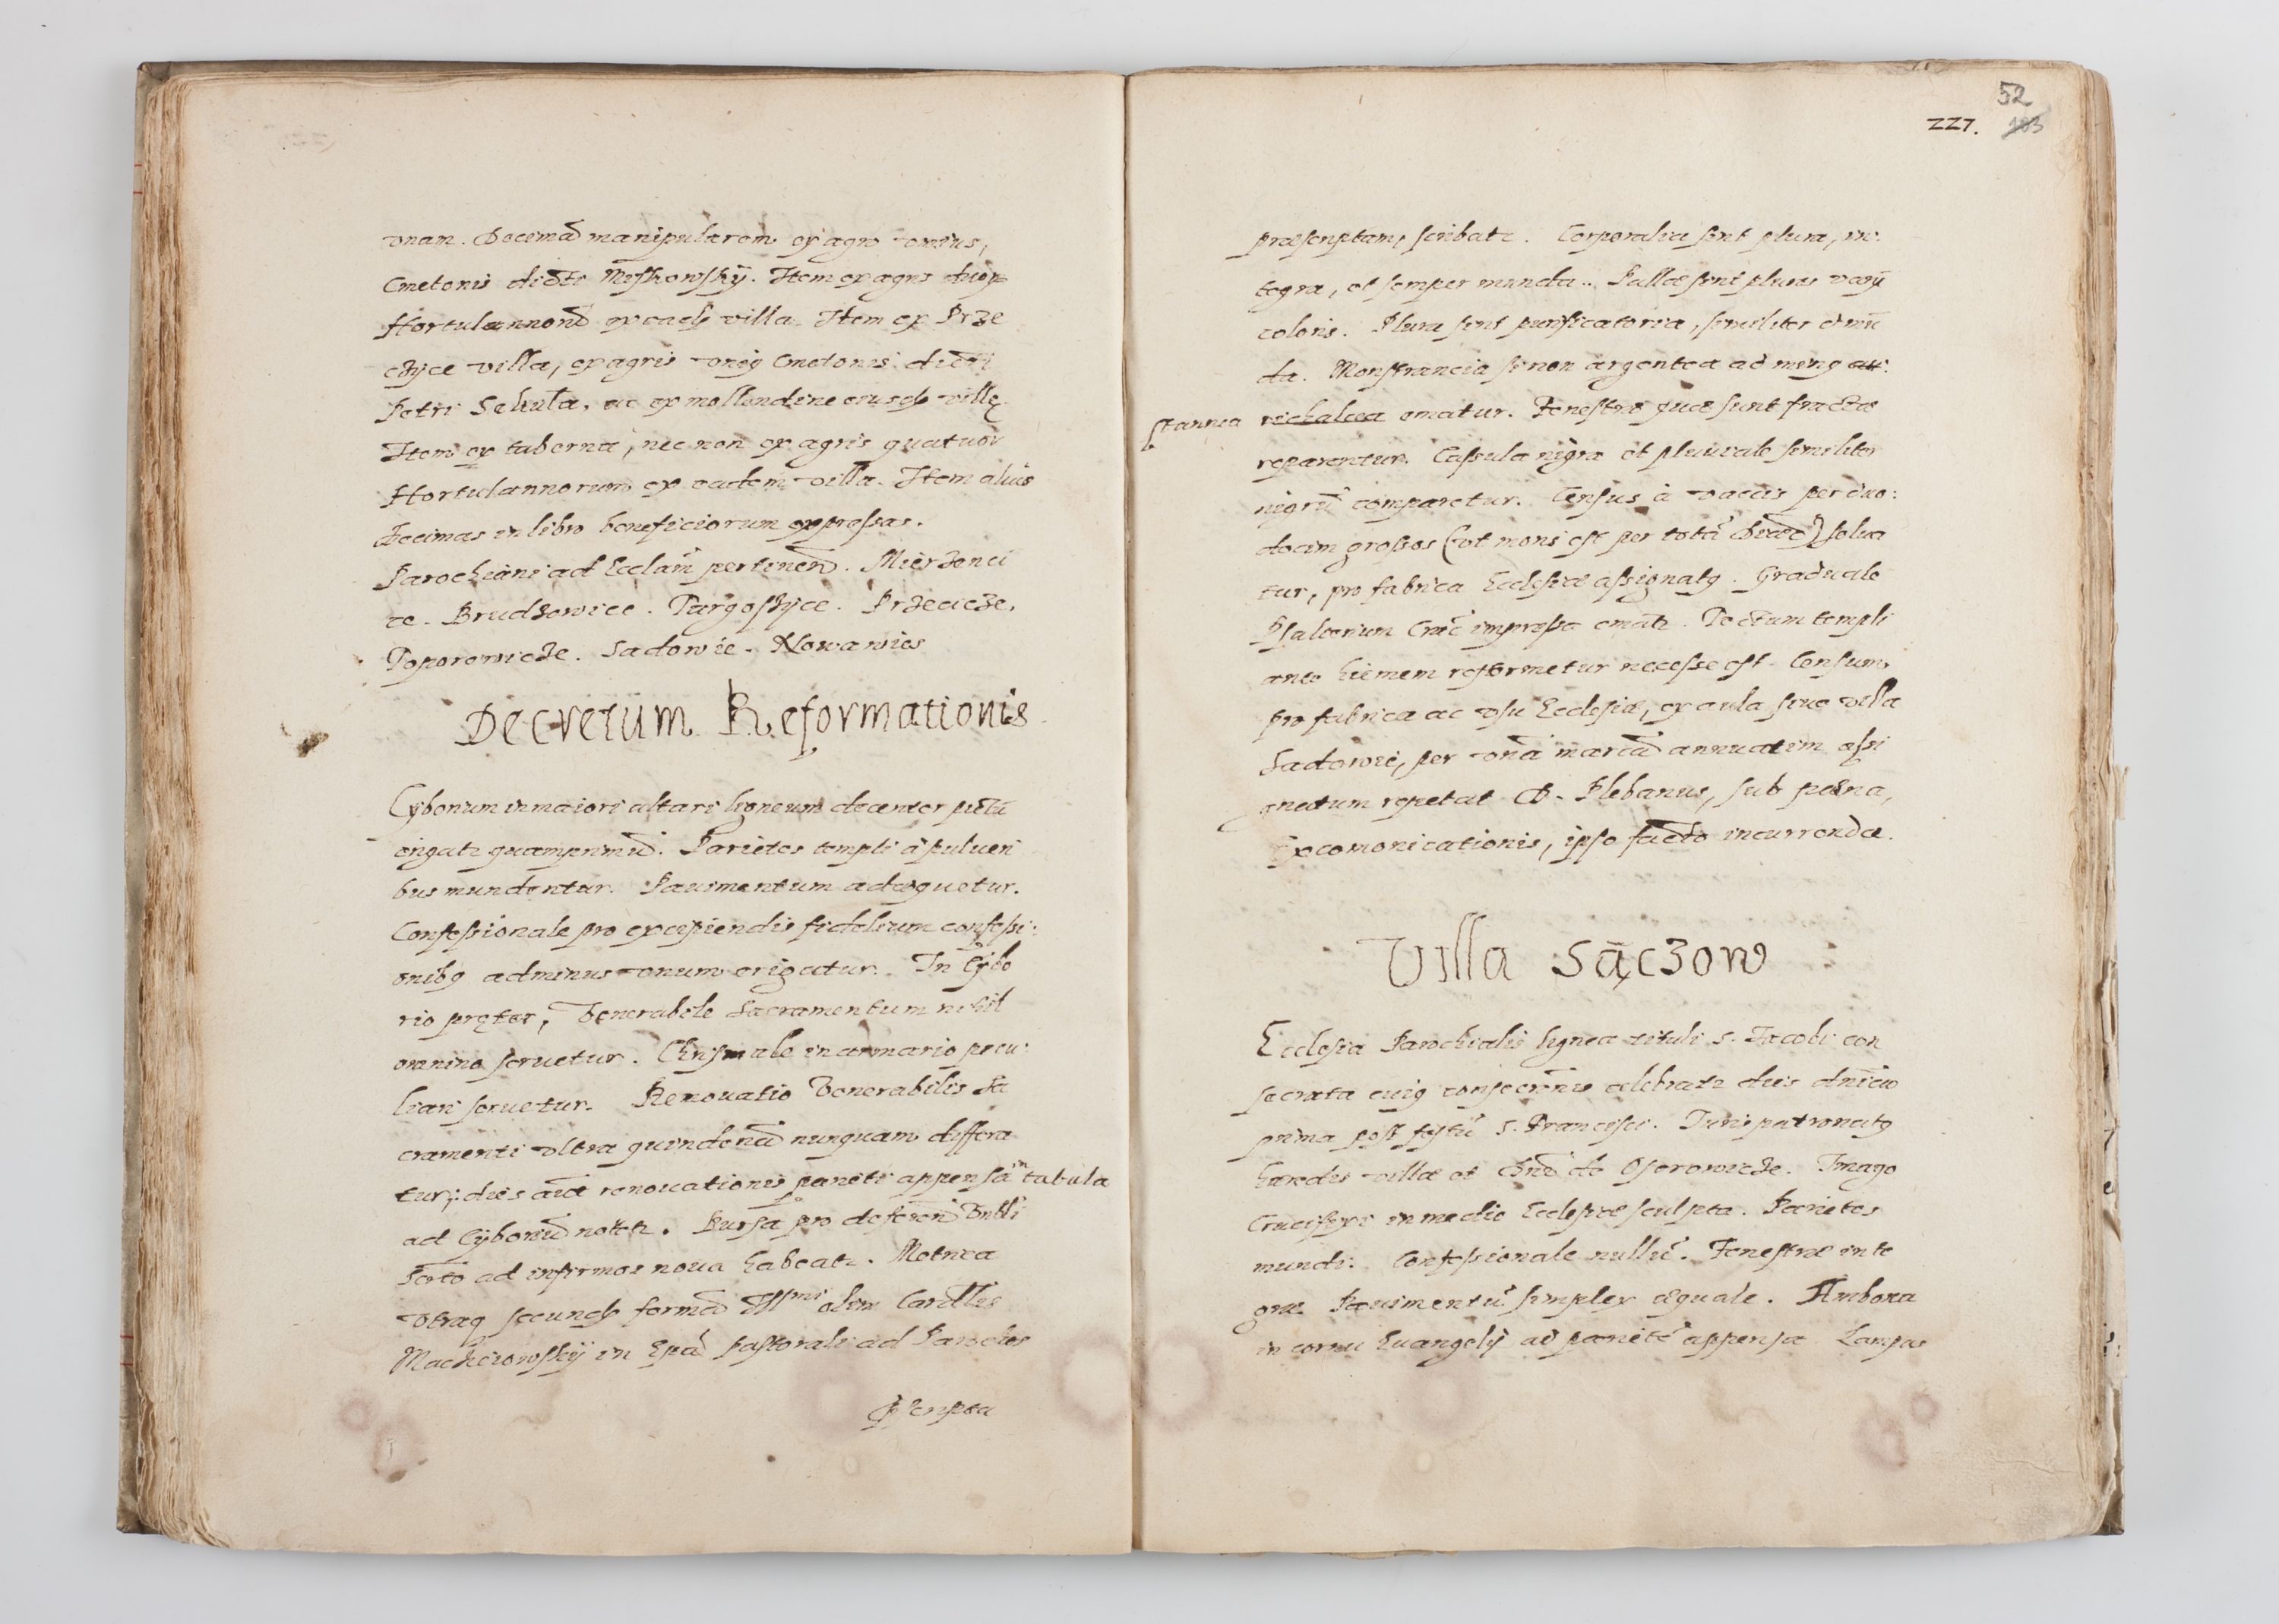 vnam. Decimã manipularem ex agro vnius,
Cmetonis dicti Męskowskÿ. Item ex agris duoȝ
Hortulannorũ ex eadẽ villa. Item ex Prze
czÿce villa, ex agris vniꝰ Cmetonis dicti
Petri Sekuła, ac ex mollendine eiusdẽ villę.
Item ex taberna, nec non ex agris quatuor
Hortulannorum ex eadem villa. Item alias
decimas in libro beneficiorum expressas.
Parochiani ad Ecclam pertineñ. Mierzenci
ce. Brudzowice. Targoszÿce. Przeczcze,
Toporowicze. Sadowie. Nowawies
Decretum Reformationis
Cÿborium in maiori altari ligneum decenter pictũ
erigatr quamprimũ. Parietes templi à pulueri
bus mundentur. Pauimentum adæquetur.
Confessionale pro excipiendis fidelium confessi:
onibꝰ adminus vnum erigatur. In Cÿbo
rio pręter, Venerabile Sacramentum nihil
omnino seruetur. Chrismale in armario pecu:
liari seruetur. Renouatio Venerabilis Sa
cramenti vltra quindenã nunquam differa
tur; dies aũt renouationis parieti appensa in tabula
ad Cÿboriũ notetr. Bursa pro deferendo Vnbli
Scto ad infirmos noua habeatr. Metrica
vtraqꝫ secundũ formã Illmi olim Cardlis
Maciejowskÿ in Epla pastorali ad Parochos
præscripta
52
227. 183
præscriptam, scribatr. Corporalia sint plura, in:
tegra, et semper munda. Pallæ sint plures varÿ
coloris. Plura sint purificatoria, similiter et mũ
da. Monstrancia si non argentea ad minꝰ au:
stannea richalcea ematur. Fenestræ quæ sunt fractæ
reparentur. Casula nigra et pluuiale similiter
nigrũ comparetur. Census à vaccis per duo:
decim grossos (vt moris est per totã Diœc) solua
tur, pro fabrica Ecclesiæ assignatꝰ. Graduale
Psalterium Crac impressa ematr. Tectum templi
ante hiemem reformetur necesse est. Censum,
pro fabrica ac vsu Ecclesiæ, ex aula siue villa
Sadowie, per vnã marcã annuatim assi
gnatum repetat D. Plebanus, sub pœna,
Excomonicationis, ipso facto incurrenda.
Villa Sączow
Ecclesia Parochialis lignea tituli S. Iacobi con
secrata cuiꝰ consecrãnis celebratr dies dnica
prima post festũ S. Francisci. Iuris patronatꝰ
hæredis villæ et Dnĩ de Oserowicze. Imago
Crucifixi in medio Ecclesiæ sculpta. Parietes
mundi. Confessionale nullũ. Fenestræ inte
græ. Pauimentũ simplex æquale. Ambona
in cornu Euangelÿ ad parietẽ appensa. Lampas